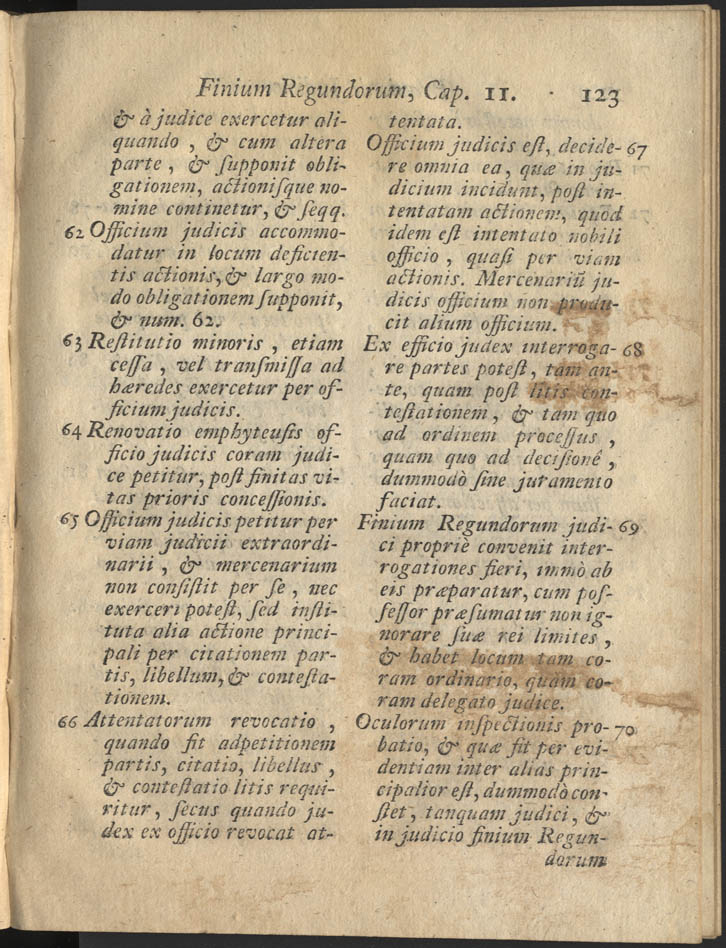 Finium Regundorum, Cap. II. 123
& à judice exercetur ali-
quando, & cum altera
parte, & ſupponit obli-
gationem, actioniſque no-
mine continetur, & ſeqq.
62 Officium judicis accommo-
datur in locum deficien-
tis actionis, & largo mo-
do obligationem ſupponit,
& num. 62.
63 Reſtitutio minoris, etiam
ceſſa, vel tranſmiſſa ad
hæredes exercetur per of-
ficium judicis.
64 Renovatio emphyteuſis of-
ficio judicis coram judi-
ce petitur, poſt finitas vi-
tas prioris conceſſionis.
65 Officium judicis petitur per
viam judicii extraordi-
narii, & mercenarium
non conſiſtit per ſe, nec
exerceri poteſt, ſed inſti-
tuta alia actione princi-
pali per citationem par-
tis, libellum, & conteſta-
tionem.
66 Attentatorum revocatio,
quando fit adpetitionem
partis, citatio, libellus,
& conteſtatio litis requi-
ritur, ſecus quando ju-
dex ex officio revocat at-
tentata.
Officium judicis eſt, decide- 67
re omnia ea, quæ in ju-
dicium incidunt, poſt in-
tentatam actionem, quòd
idem eſt intentato nobili
officio, quaſi per viam
actionis. Mercenariũ ju-
dicis officium non produ-
cit alium officium.
Ex efficio judex interroga- 68
re partes poteſt, tàm an-
te, quam poſt litis con-
teſtationem, & tam quo
ad ordinem proceſſus,
quam quo ad deciſionẽ,
dummodò ſine juramento
faciat.
Finium Regundorum judi- 69
ci propriè convenit inter-
rogationes fieri, immò ab
eis præparatur, cum poſ-
ſeſſor præſumatur non ig-
norare ſuæ rei limites,
& habet locum tam co-
ram ordinario, quàm co-
ram delegato judice.
Oculorum inſpectionis pro- 70
batio, & quæ fit per evi-
dentiam inter alias prin-
cipalior eſt, dummodò con-
ſtet, tanquam judici, &
in judicio finium Regun-
dorum